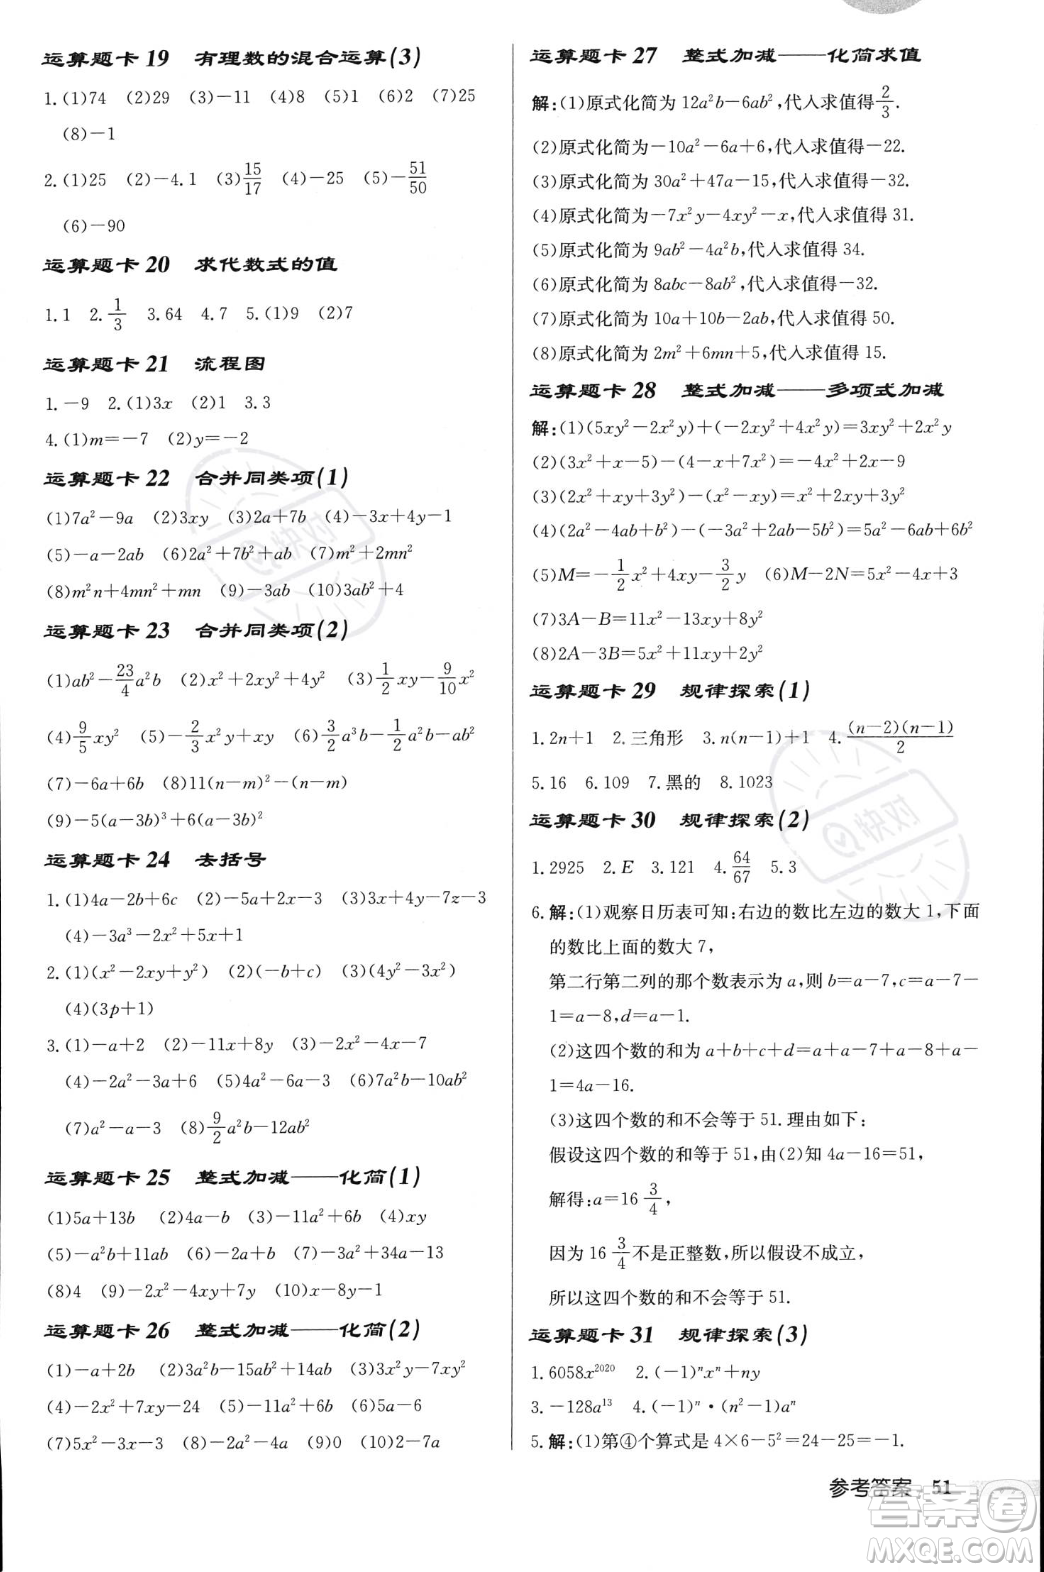 运算题卡 19 有理数的混合运算(3)
1.(1)74 (2)29 (3)-11 (4)8 (5)1 (6)2 (7)25
(8)-1
2.(1)25 (2)-4.1 (3)15/17 (4)-25 (5)-51/50
(6)-90
运算题卡 20 求代数式的值
1.1 2.1/3 3.64 4.7 5.(1)9 (2)7
运算题卡 21 流程图
1.-9 2.(1)3x (2)1 3.3
4.(1)m=-7 (2)y=-2
运算题卡 22 合并同类项(1)
(1)7a²-9a (2)3xy (3)2a+7b (4)-3x+4y-1
(5)-a-2ab (6)2a²+7b²+ab (7)m²+2mn²
(8)m²n+4mn²+2n² (9)-3ab (10)3ab²+4
运算题卡 23 合并同类项(2)
(1)ab²-23/4a²b (2)x²+2xy²+4y² (3)1/2xy-9/10x²
(4)9/5xy² (5)-2/3x²y-xy² (6)3/2a³b-1/2a²b-ab²
(7)-6a+6b (8)11(n-m)²-(n-m)
(9)-5(a-3b)³+4(a-3b)²
运算题卡 24 去括号
1.(1)4a-2b+6c (2)-2x²+2x-3 (3)4x+4y-7z-3
(4)-3a³-2x²+5x+1
2.(1)(x²-2xy+y²) (2)(-b+c) (3)(4y²-3x²)
(4)(3p+1)
3.(1)-a+2 (2)-11x+8y (3)-2x²-4x-7
(4)-2a²-3a+6 (5)4a²-6a-3 (6)7a²b-10ab²
(7)a²-a-3 (8)9/2a²b-12ab²
运算题卡 25 整式加减——化简(1)
(1)5a+13b (2)4a-b (3)-11a²+10b² (4)xy
(5)-a²b+11ab² (6)-2a+b² (7)3a²+34a-13
(8)4 (9)-2x²-4xy+7y (10)x-8y-1
运算题卡 26 整式加减——化简(2)
(1)-a+2b (2)3a²b-15ab²+2 (3)3x²y-7xy²
(4)-2x²+7xy-24 (5)2a²+9b (6)5a-6
(7)5x²-3x-3 (8)-2a²-6a (9)0 (10)2-7a
运算题卡 27 整式加减——化简求值
解:(1)原式化简为 12a²b-6ab²,代入求值得2/3.
(2)原式化简为-10a²-6a+6,代入求值得-22.
(3)原式化简为 30a²+47a-15,代入求值得-32.
(4)原式化简为-7x²y-4xy²-x,代入求值得 31.
(5)原式化简为 9ab²-4a²b,代入求值得 34.
(6)原式化简为 8abc-8ab²,代入求值得-32.
(7)原式化简为 10a+10b-2ab,代入求值得 50.
(8)原式化简为 2m²+6mn+5,代入求值得 15.
运算题卡 28 整式加减——多项式加减
解:(1)(5xy²-2x²y)+(-2xy²+4x²y)=3xy²+2x²y
(2)(3x²+x-5)-(4-x+7x²)=-4x²+2x-9
(3)(2x²+xy+3y²)-(x²-xy+2y²)=x²+2xy+y²
(4)(2a²-4ab+b²)-(-3a²+2ab-5b²)=5a²-6ab+6b²
(5)M=-1/2x²+4xy-3/2y (6)M-2N=5x²-4x+3
(7)3A-B=11x²-13xy+8y²
(8)2A-3B=5x²+11xy+2y²
运算题卡 29 规律探索(1)
1.2n+1 2.三角形 3.n(n-1)+1 4.(n-2)(n-1)/2
5.16 6.109 7.黑的 8.1023
运算题卡 30 规律探索(2)
1.2925 2.E 3.121 4.64/67 5.3
6.解:(1)观察日历表可知:右边的数比左边的数大 1,下面
的数比上面的数大 7,
第二行第二列的那个数表示为 a,则 b=a-7,c=a-7-
1=a-8,d=a-1.
(2)这四个数的和为 a+b+c+d=a+a-7+a-8+a-
1=4a-16.
(3)这四个数的和不会等于 51.理由如下:
假设这四个数的和等于 51,由(2)知 4a-16=51,
解得:a=16 3/4,
因为 16 3/4不是正整数,所以假设不成立,
所以这四个数的和不会等于 51.
运算题卡 31 规律探索(3)
1.6058x²⁰²⁰ 2.(-1)ⁿxⁿ+ny
3.-128a¹³ 4.(-1)ⁿ·(n²-1)aⁿ
5.解:(1)第④个算式是 4×6-5²=24-25=-1.
参考答案 51
答案圈
MXQE.COM
快对
快对